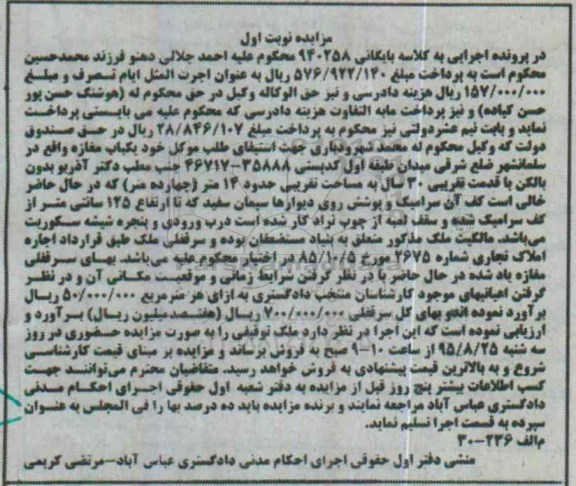 مزایده نوبت اول
در پرونده اجرایی به کلاسه بایگانی ۹۴۰۲۵۸ محکوم علیه احمد جلالی دهنو فرزند محمدحسین
محکوم است به پرداخت مبلغ ۵۷۶/۹۲۲/۱۴۰ ریال به عنوان اجرت المثل ایام تصرف و مبلغ
۱۵۷/۰۰۰/۰۰۰ ریال هزینه دادرسی و نیز حق الوکاله وکیل در حق محکوم له (هوشنگ حسن پور
حسن کیاده) و نیز پرداخت مابه التفاوت هزینه دادرسی که محکوم علیه می بایستی پرداخت
نماید و بابت نیم عشردولتی نیز محکوم به پرداخت مبلغ ۲۸/۸۴۶/۱۰۷ ریال در حق صندوق
دولت که وکیل محکوم له محمد شیرودباری جهت استیفای طلب موکل خود یکباب مغازه واقع در
سلمانشهر ضلع شرقی میدان طبقه اول کدپستی ۳۵۸۸۸-۴۶۷۱۷ جنب مطب دکتر آذریو بدون
بالکن با قدمت تقریبی ۳۰ سال به مساحت تقریبی حدود ۱۴ متر (چهارده متر) که در حال حاضر
خالی است کف آن سرامیک و پوشش روی دیوارها سیمان سفید که تا ارتفاع ۱۲۵ سانتی متر از
کف سرامیک شده و سقف لمبه از چوب نراد کار شده است درب ورودی و پنجره شیشه سکوریت
می‌باشد. مالکیت ملک مذکور متعلق به بنیاد مستضعفان بوده و سرقفلی ملک طبق قرارداد اجاره
املاک تجاری شماره ۲۶۷۵ مورخ ۸۵/۱۰/۵ در اختیار محکوم علیه می‌باشد. بهای سرقفلی
مغازه یاد شده در حال حاضر با در نظر گرفتن شرایط زمانی و موقعیت مکانی آن و در نظر
گرفتن اعیانیهای موجود کارشناسان منتخب دادگستری به ازای هر متر مربع ۵۰/۰۰۰/۰۰۰ ریال
برآورد نموده اندو بهای کل سرقفلی ۷۰۰/۰۰۰/۰۰۰ ریال (هفتصدمیلیون ریال) برآورد و
ارزیابی نموده است که این اجرا در نظر دارد ملک توقیفی را به صورت مزایده حضوری در روز
سه شنبه ۹۵/۸/۲۵ از ساعت ۱۰-۹ صبح به فروش برساند و مزایده بر مبنای قیمت کارشناسی
شروع و به بالاترین قیمت پیشنهادی به فروش خواهد رسید. متقاضیان محترم می‌توانند جهت
کسب اطلاعات بیشتر پنج روز قبل از مزایده به دفتر شعبه اول حقوقی اجرای احکام مدنی
دادگستری عباس آباد مراجعه نمایند و برنده مزایده باید ده درصد بها را فی المجلس به عنوان
سپرده به قسمت اجرا تسلیم نماید.
م‌الف ۲۳۶-۳۰
منشی دفتر اول حقوقی اجرای احکام مدنی دادگستری عباس آباد-مرتضی کریمی